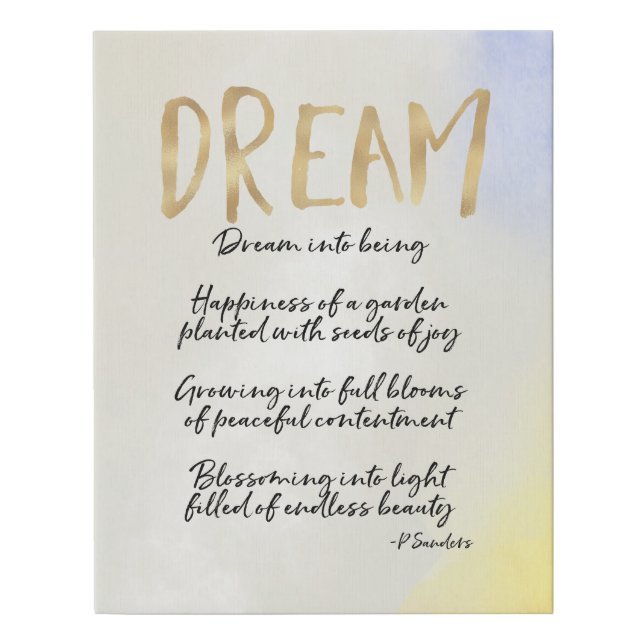 DREAM
Dream into being
Happiness of a garden
planted with seeds of joy
Growing into full blooms
of peaceful contentment
Blossoming into light
filled of endless beauty
-P Sanders